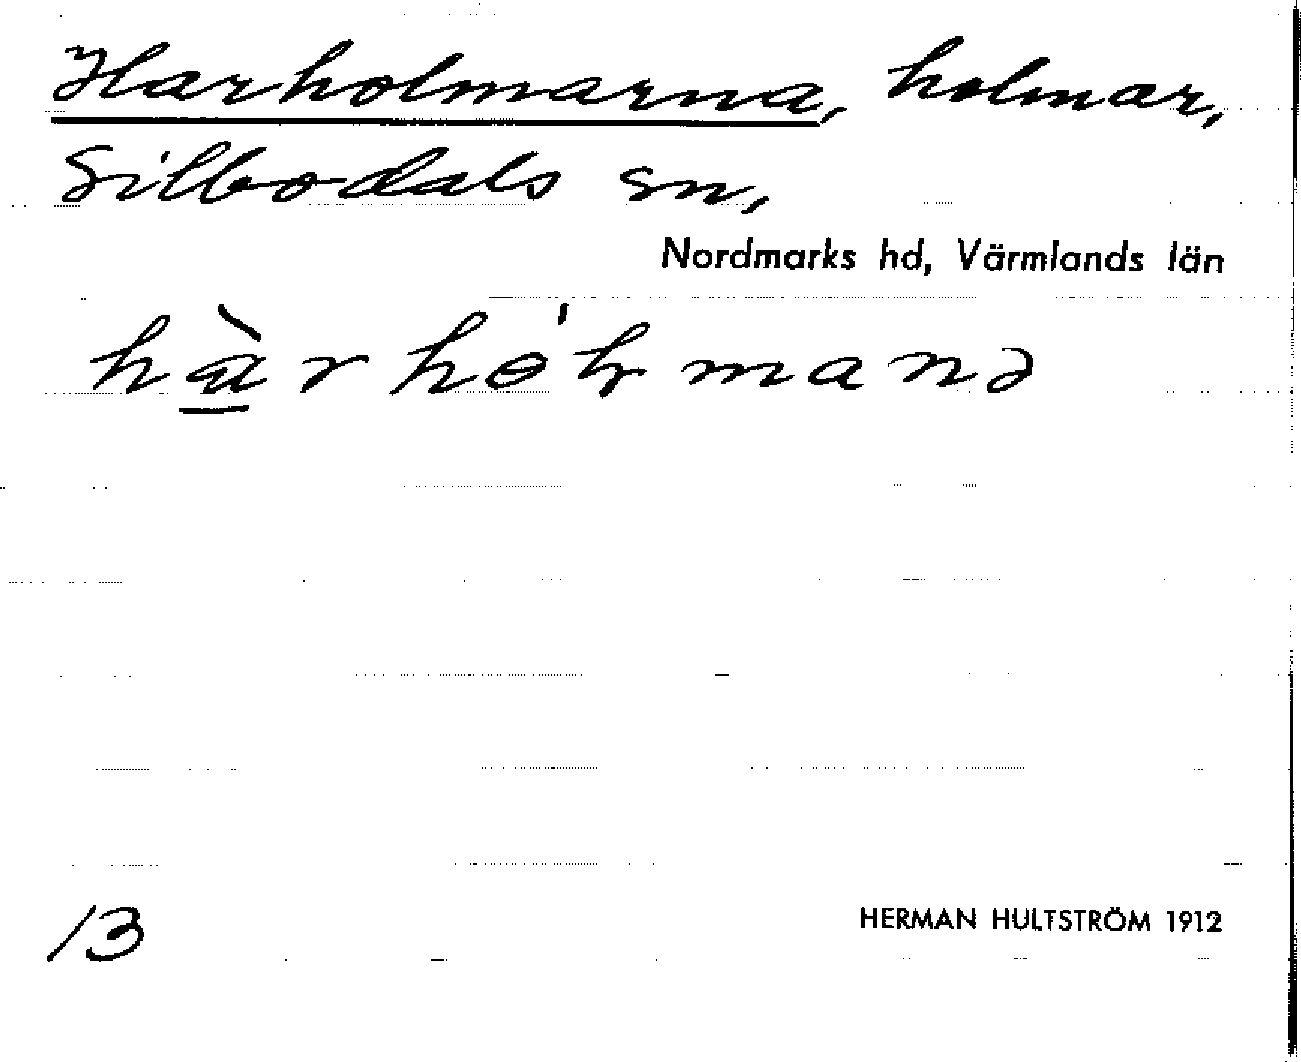 Harholmarna, holmar,
Silbodals sn,
Nordmarks hd, Värmlands län
hàrhɵ́ɽmanə
13
HERMAN HULTSTRÖM 1912